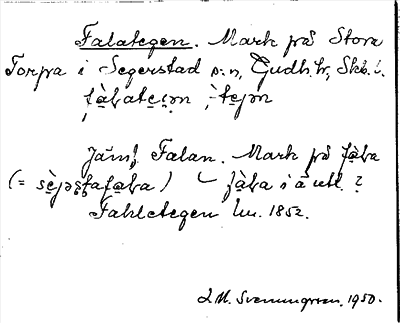 Falategen. Mark på Stora
Torpa i Segerstad s:n, Gudh. hr, Skb. l.
fàbatęi̯ən, -tęjən
Jämf. Falan. Mark på fàba
(= sèjəṣṭafaba) fàba i ä utt. ?
Fahletegen lm. 1852.
S. M. Svenungsson. 1950.